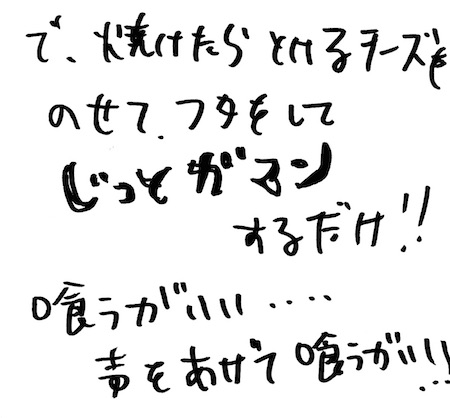 で、焼けたら とけるチーズを
のせて、フタをして
じっとガマン
するだけ!!
喰うがいい‥‥
声をあげて喰うがいい…